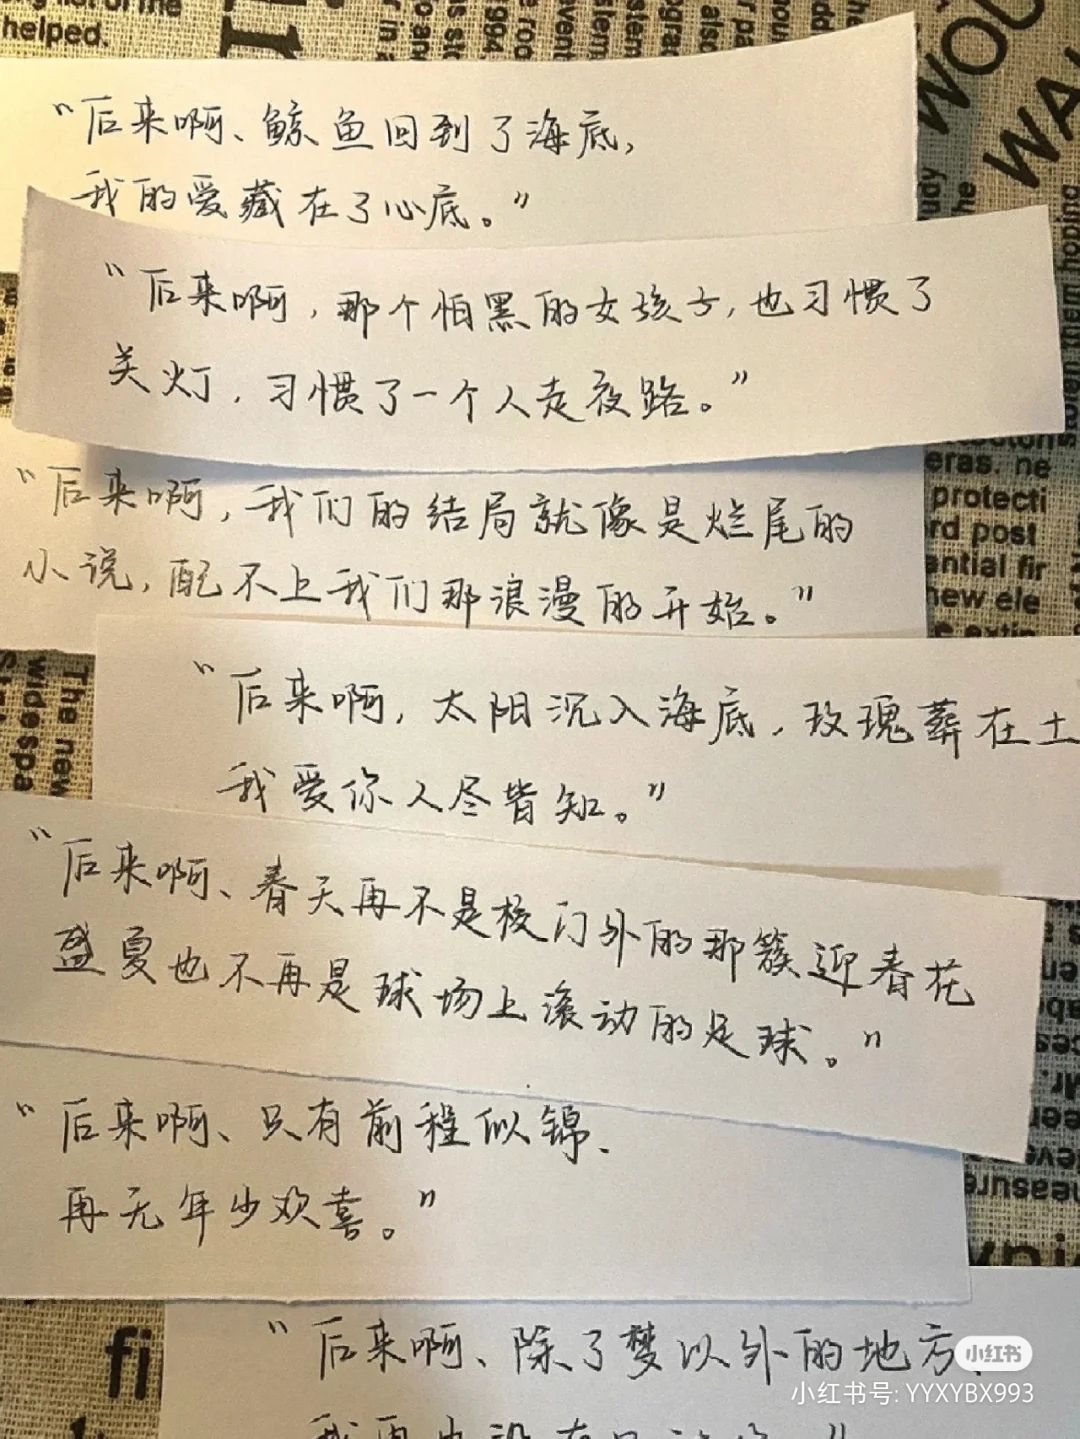 helped.
"后来啊、鲸鱼回到了海底,
我的爱藏在了心底。"
"后来啊,那个怕黑的女孩子,也习惯了
关灯,习惯了一个人走夜路。"
"后来啊,我们的结局就像是烂尾的
小说,配不上我们那浪漫的开始。"
eras. ne
protecti
rd post
ential fir
new ele
"后来啊,太阳沉入海底,玫瑰葬在土
我爱你人尽皆知。"
The new
widespa
"后来啊、春天再不是校门外的那簇迎春花
盛夏也不再是球场上滚动的足球。"
"后来啊、只有前程似锦、
再无年少欢喜。"
"后来啊、除了梦以外的地方、
fi
小红书
小红书号: YYXYBX993